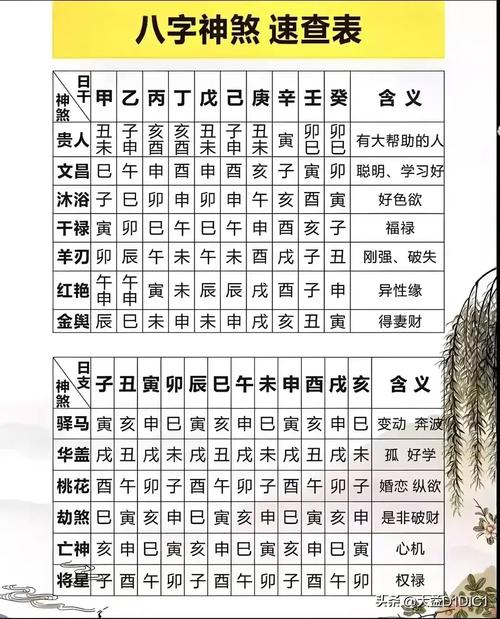 八字神煞 速查表
日干 神煞 甲 乙 丙 丁 戊 己 庚 辛 壬 癸 含义
贵人 丑未 子申 亥酉 亥酉 丑未 子申 丑未 寅 卯巳 卯巳 有大帮助的人
文昌 巳 午 申 酉 申 酉 亥 子 寅 卯 聪明、学习好
沐浴 子 巳 卯 申 卯 申 午 亥 酉 寅 好色欲
干禄 寅 卯 巳 午 巳 午 申 酉 亥 子 福禄
羊刃 卯 辰 午 未 午 未 酉 戌 子 丑 刚强、破失
红艳 午申 午申 寅 未 辰 辰 戌 酉 子 申 异性缘
金舆 辰 巳 未 申 未 申 戌 亥 丑 寅 得妻财
日支 神煞 子 丑 寅 卯 辰 巳 午 未 申 酉 戌 亥 含义
驿马 寅 亥 申 巳 寅 亥 申 巳 寅 亥 申 巳 变动 奔波
华盖 辰 丑 戌 未 辰 丑 戌 未 辰 丑 戌 未 孤 好学
桃花 酉 午 卯 子 酉 午 卯 子 酉 午 卯 子 婚恋 纵欲
劫煞 巳 寅 亥 申 巳 寅 亥 申 巳 寅 亥 申 是非破财
亡神 亥 申 巳 寅 亥 申 巳 寅 亥 申 巳 寅 心机
将星 子 酉 午 卯 子 酉 午 卯 子 酉 午 卯 权禄
头条 @天益D1DIC1